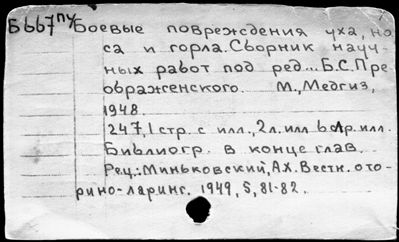 Б667пу Боевые повреждения уха, но-
са и горла. Сборник науч-
ных работ под ред... Б.С. Пре-
ображенского. М., Медгиз,
1948.
247,1 стр. с илл., 2 л. илл.
Библиогр. в конце глав.
Рец.: Миньковский, А.Х. Вестн. ото-
рино-ларинг. 1949, 5, 81-82.